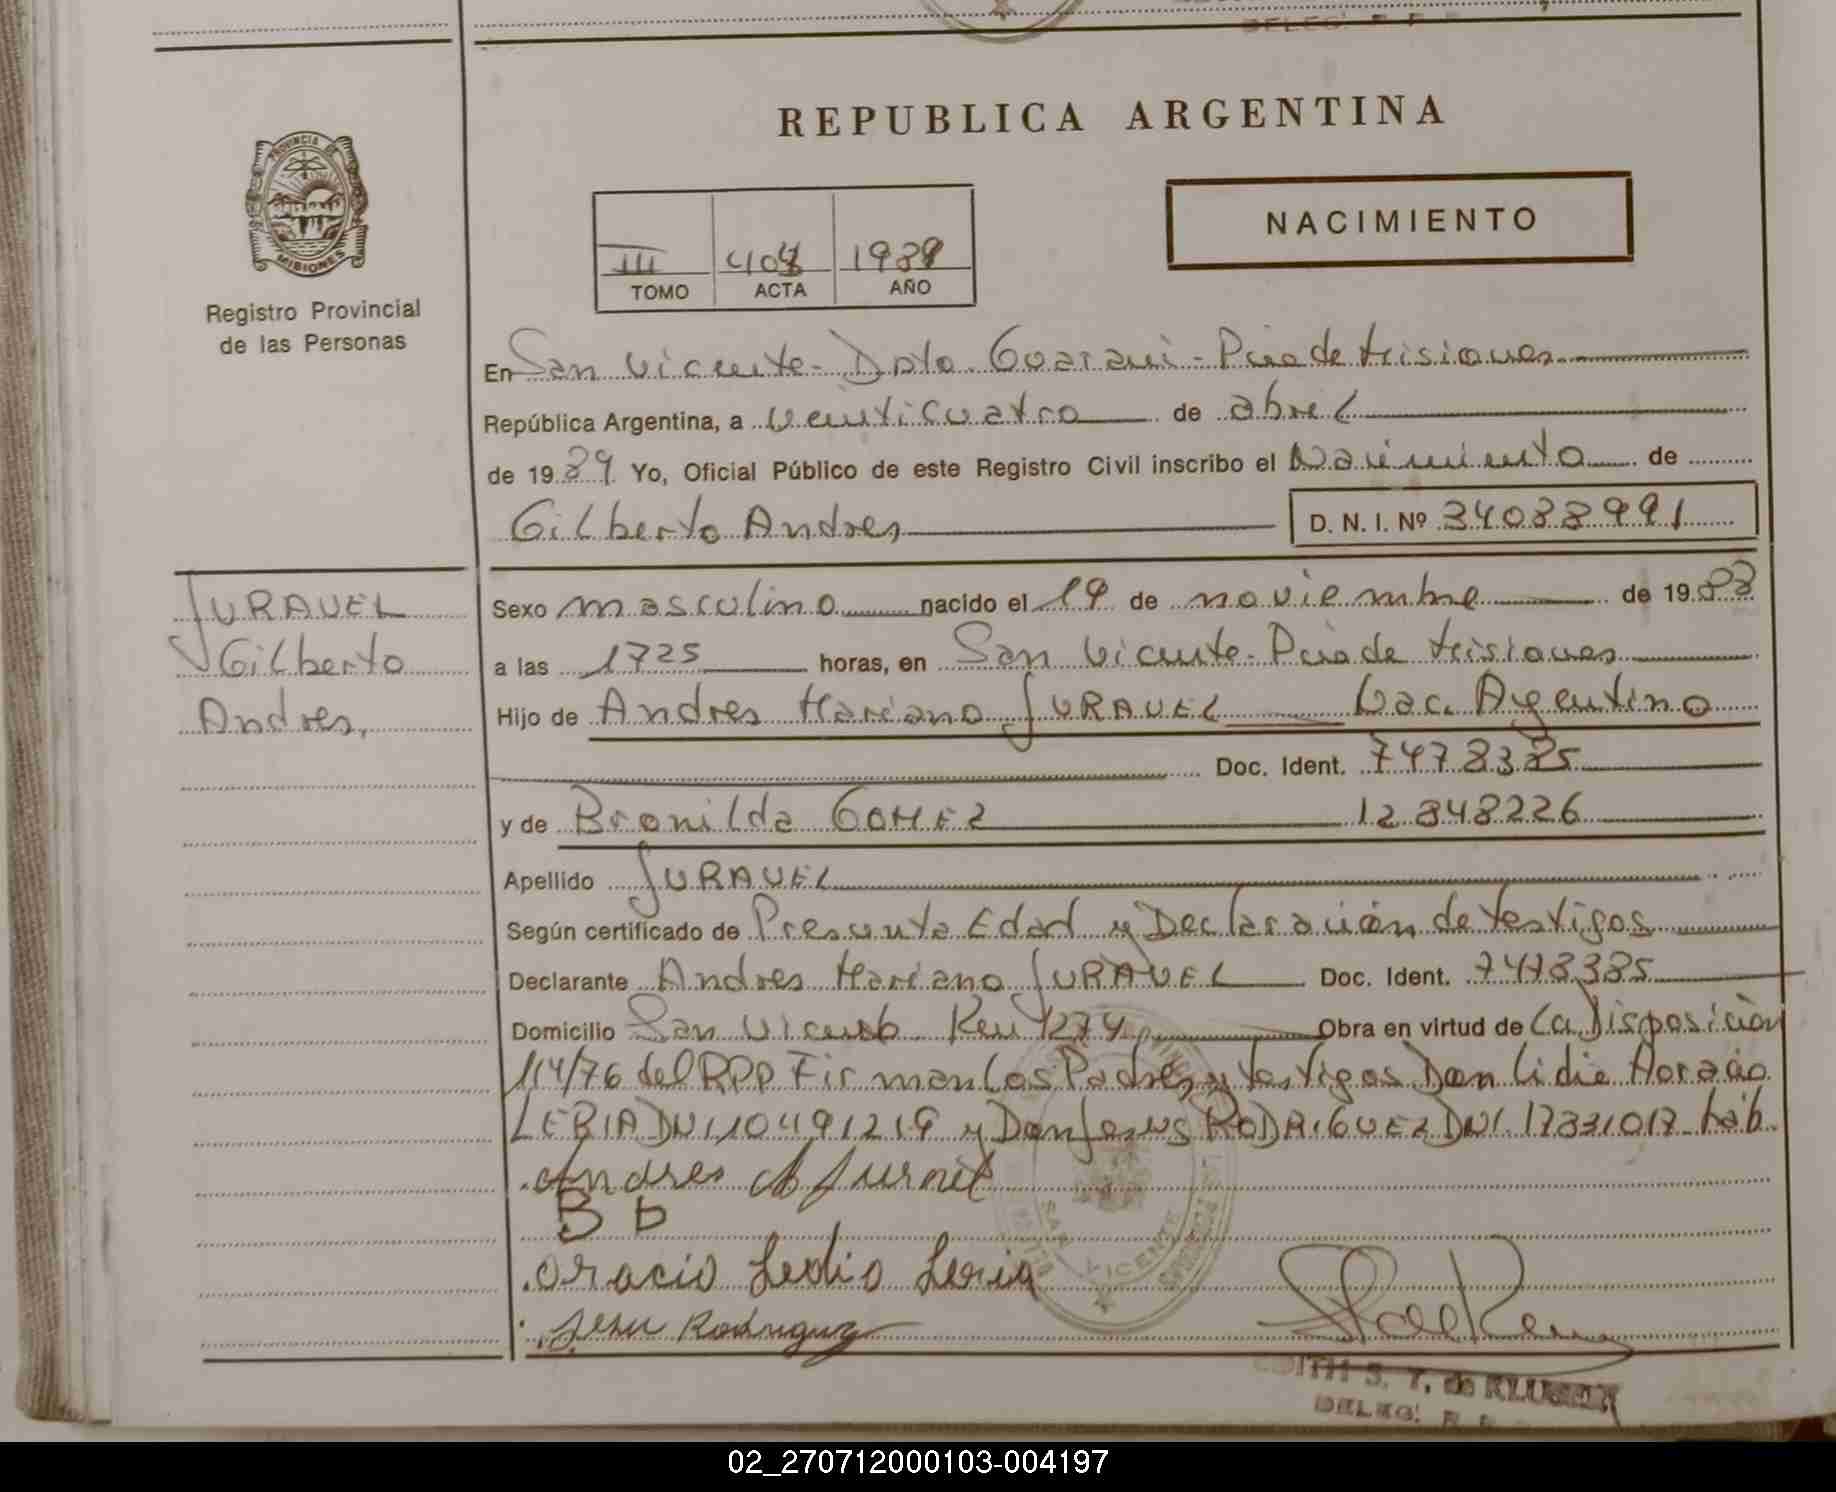 REPUBLICA ARGENTINA
PROVINCIA DE MISIONES
Registro Provincial
de las Personas
NACIMIENTO
III 408 1989
TOMO ACTA AÑO
En San Vicente - Dpto. Guarani - Pcia de Misiones
República Argentina, a veinticuatro de abril
de 1989 Yo, Oficial Público de este Registro Civil inscribo el Nacimiento de
Gilberto Andres D. N. I. Nº 34088991
JURAVEL
Gilberto
Andres,
Sexo masculino nacido el 19 de noviembre de 1988
a las 1725 horas, en San Vicente - Pcia de Misiones
Hijo de Andres Mariano JURAVEL Nac. Argentino
Doc. Ident. 7478385
y de Bronilda GOMEZ 12848226
Apellido JURAVEL
Según certificado de Presunta Edad y Declaración de testigos
Declarante Andres Mariano JURAVEL Doc. Ident. 7478385
Domicilio San Vicente Km 1274, Obra en virtud de La Disposición
114/76 del RPP Firman Los Padres y testigos Don Lidio Horacio
LERIA DNI 10491219 y Don Jesus RODRIGUEZ DNI. 17831017 háb.
Andres M Juravel
B b
oracio Ledio Leria
Jesu Rodriguez
SAN VICENTE
EDITH S. T. de
DELEG.
02_270712000103-004197